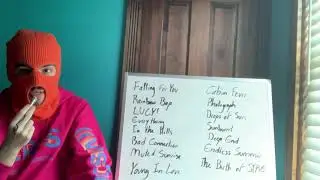 Falling For You
Rainbow Bap
LUCY!
Everything
In the Hills
Bad Connection
Muted Sunrise
Young In Love
Cabin Fever
Photograph
Drops of Sun
Sunburnt
Deep End
Endless Summer
The Birth of